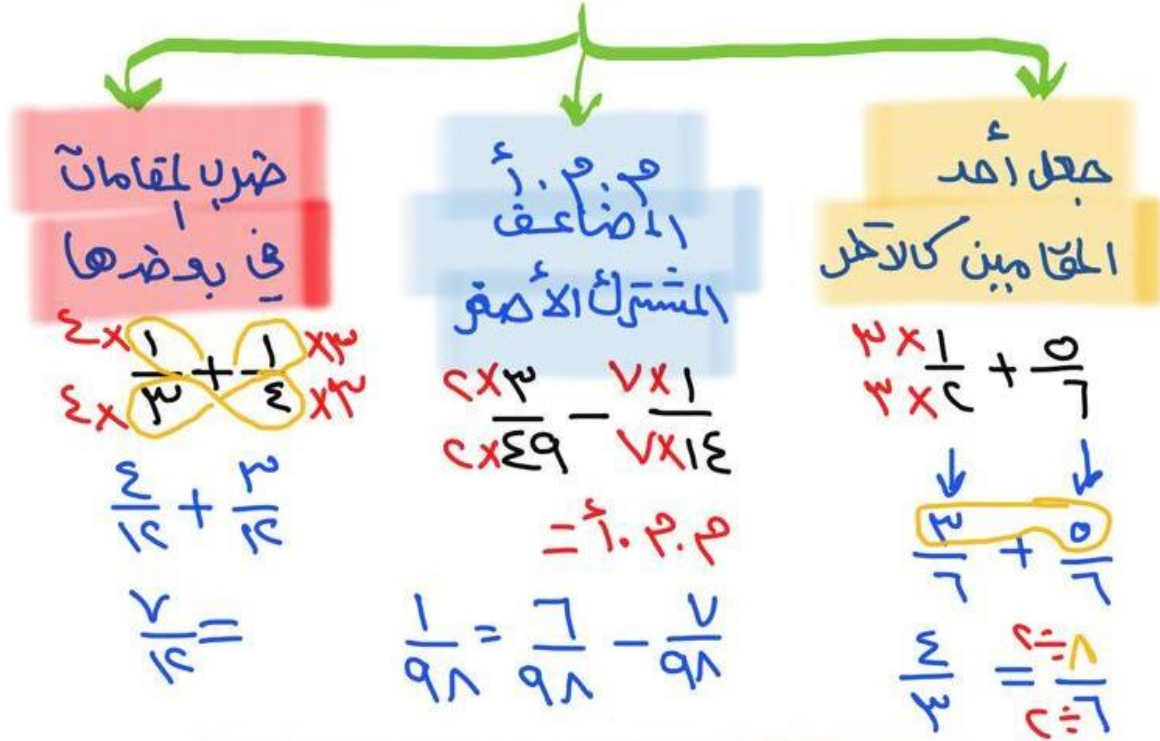 جعل أحد
المقامين كالآخر
٣ × ١/٢ × ٣ + ٥/٦
٣/٦ + ٥/٦
٨ ÷ ٢ / ٦ ÷ ٢ = ٤/٣
م.م.أ
المضاعف
المشترك الأصغر
٧ × ١ / ٧ × ١٤ − ٢ × ٣ / ٢ × ٤٩
م.م.أ =
٧/٩٨ − ٦/٩٨ = ١/٩٨
ضرب المقامات
في بعضها
٤ × ١ / ٤ × ٣ + ١ × ٣ / ٤ × ٣
٤/١٢ + ٣/١٢
= ٧/١٢